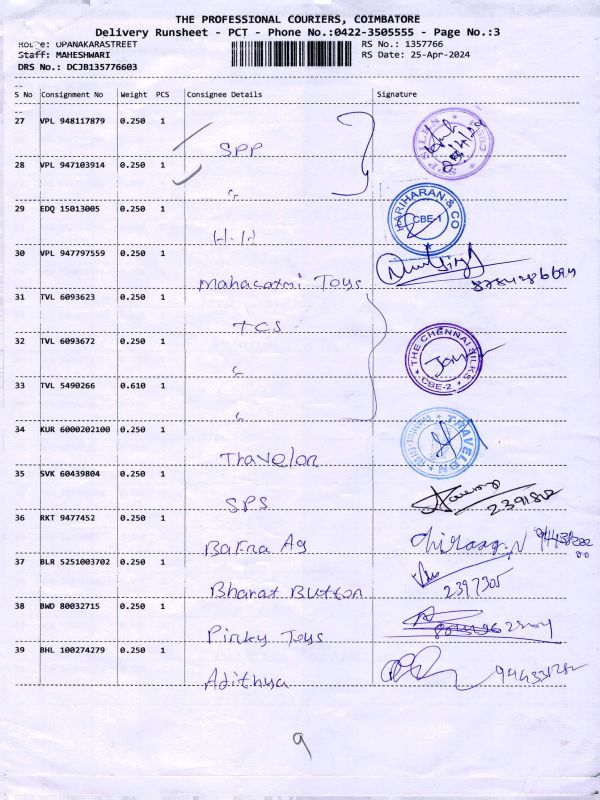 THE PROFESSIONAL COURIERS, COIMBATORE
Delivery Runsheet - PCT - Phone No.:0422-3505555 - Page No.:3
Route: OPANAKARASTREET RS No.: 1357766
Staff: MAHESHWARI RS Date: 25-Apr-2024
DRS No.: DCJB135776603
S No Consignment No Weight PCS Consignee Details Signature
27 VPL 948117879 0.250 1
SPP
28 VPL 947103914 0.250 1
"
29 EDQ 15013005 0.250 1 HARIHARAN & CO
CBE-1
H.H
30 VPL 947797559 0.250 1
Mahalaxmi Toys
31 TVL 6093623 0.250 1
TCS
32 TVL 6093672 0.250 1 THE CHENNAI SILKS
CBE-2
"
33 TVL 5490266 0.610 1
"
34 KUR 6000202100 0.250 1 TRAVELON
Travelon
35 SVK 60439804 0.250 1
SPS 2391812
36 RKT 9477452 0.250 1
Bafna Ag
37 BLR 5251003702 0.250 1
Bharat Button 2397305
38 BWD 80032715 0.250 1
Pinky Toys
39 BHL 100274279 0.250 1
Adithya
9